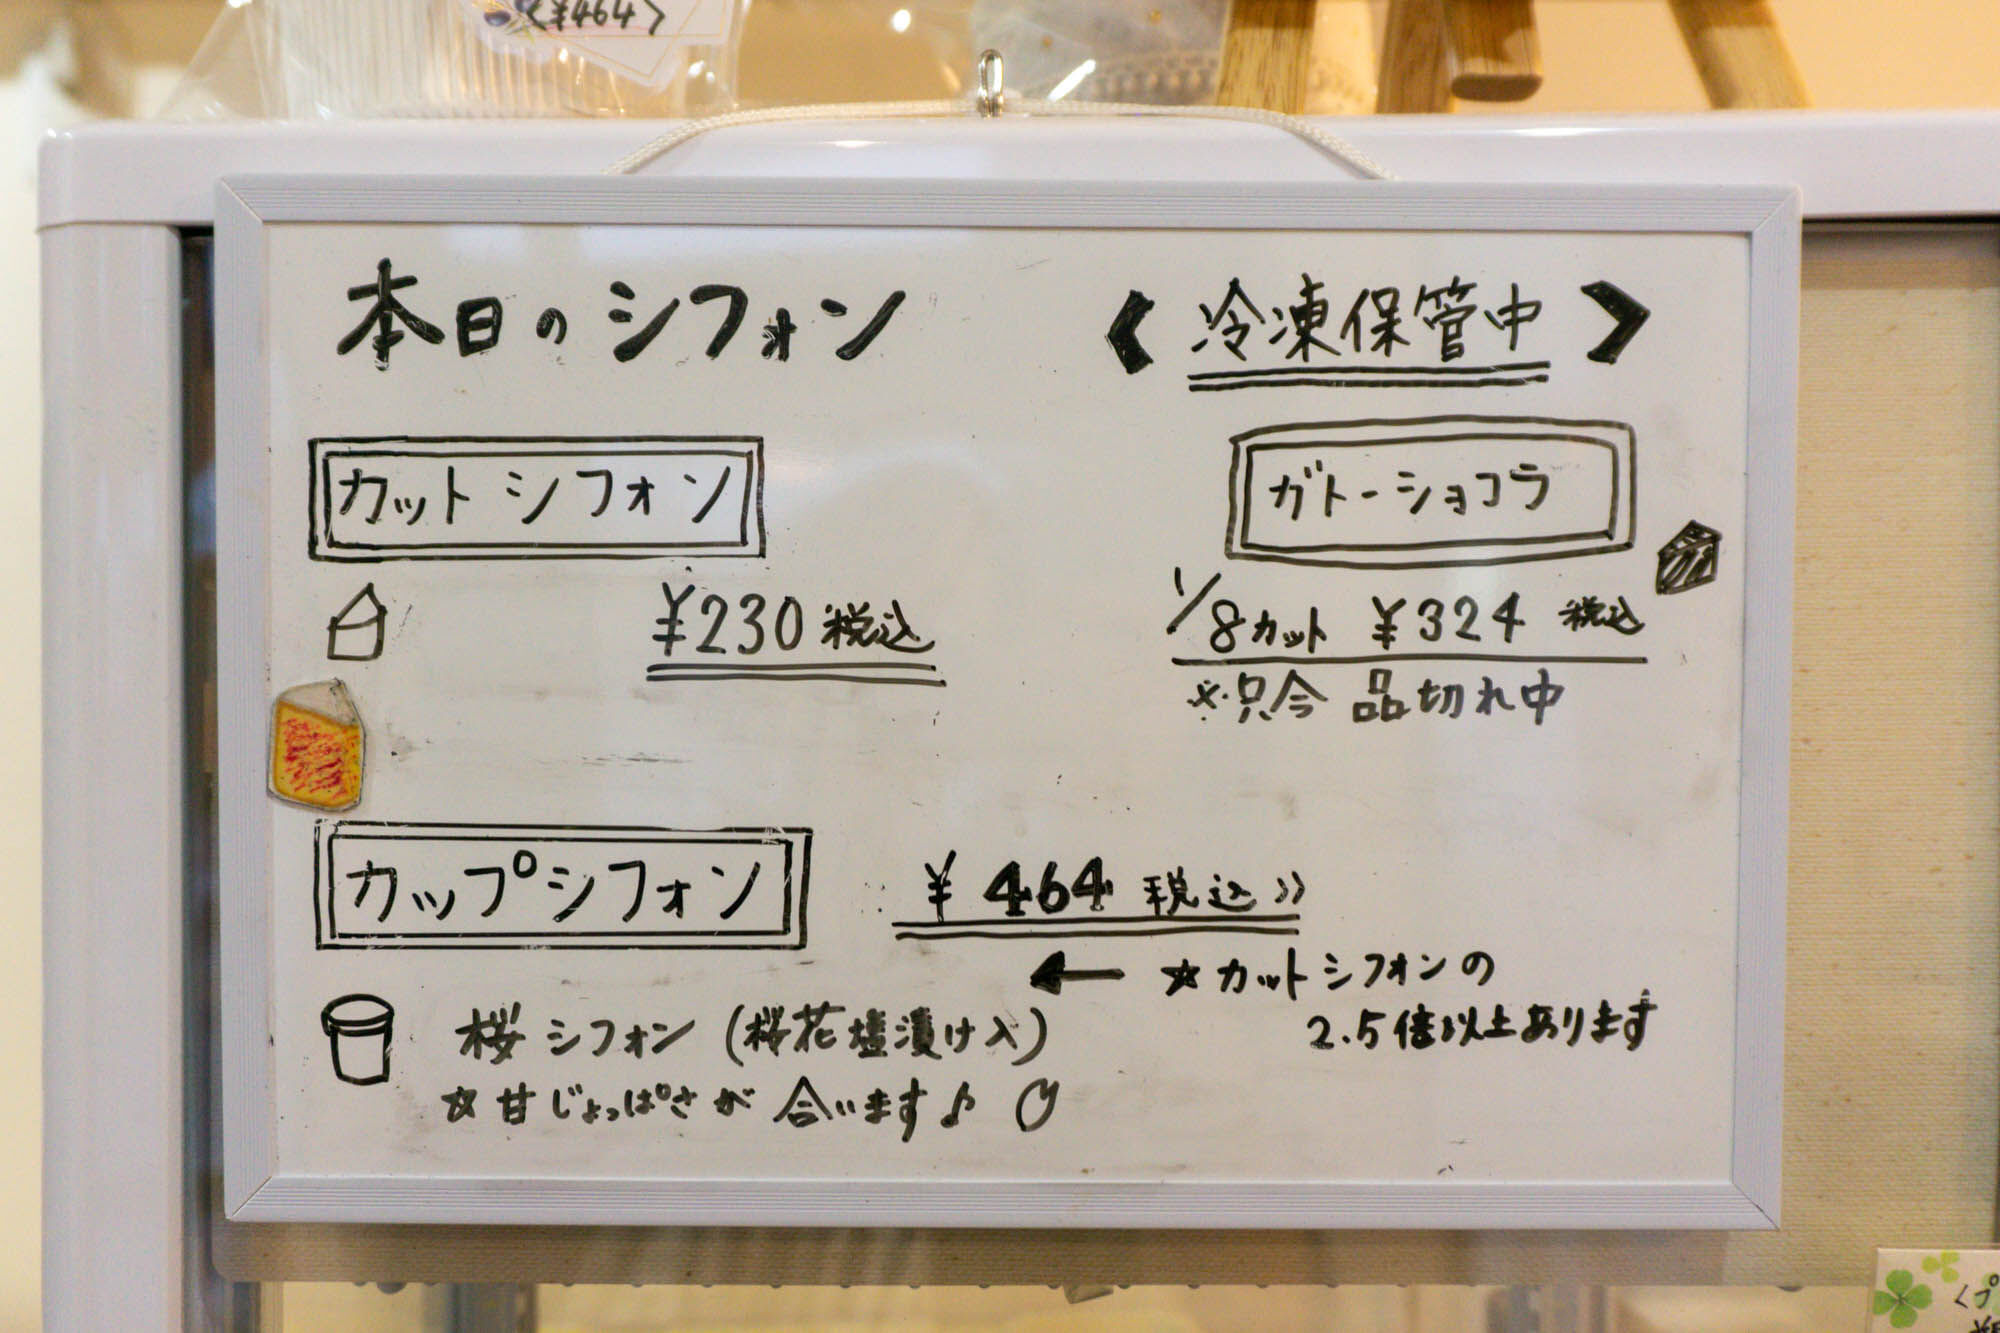 <¥464>
本日のシフォン
カットシフォン
¥230税込
《冷凍保管中》
ガトーショコラ
1/8カット ¥324 税込
※只今 品切れ中
カップシフォン
¥464 税込》
← ☆カットシフォンの
2.5倍以上あります
桜シフォン(桜花塩漬け入)
☆甘じょっぱさが合います♪